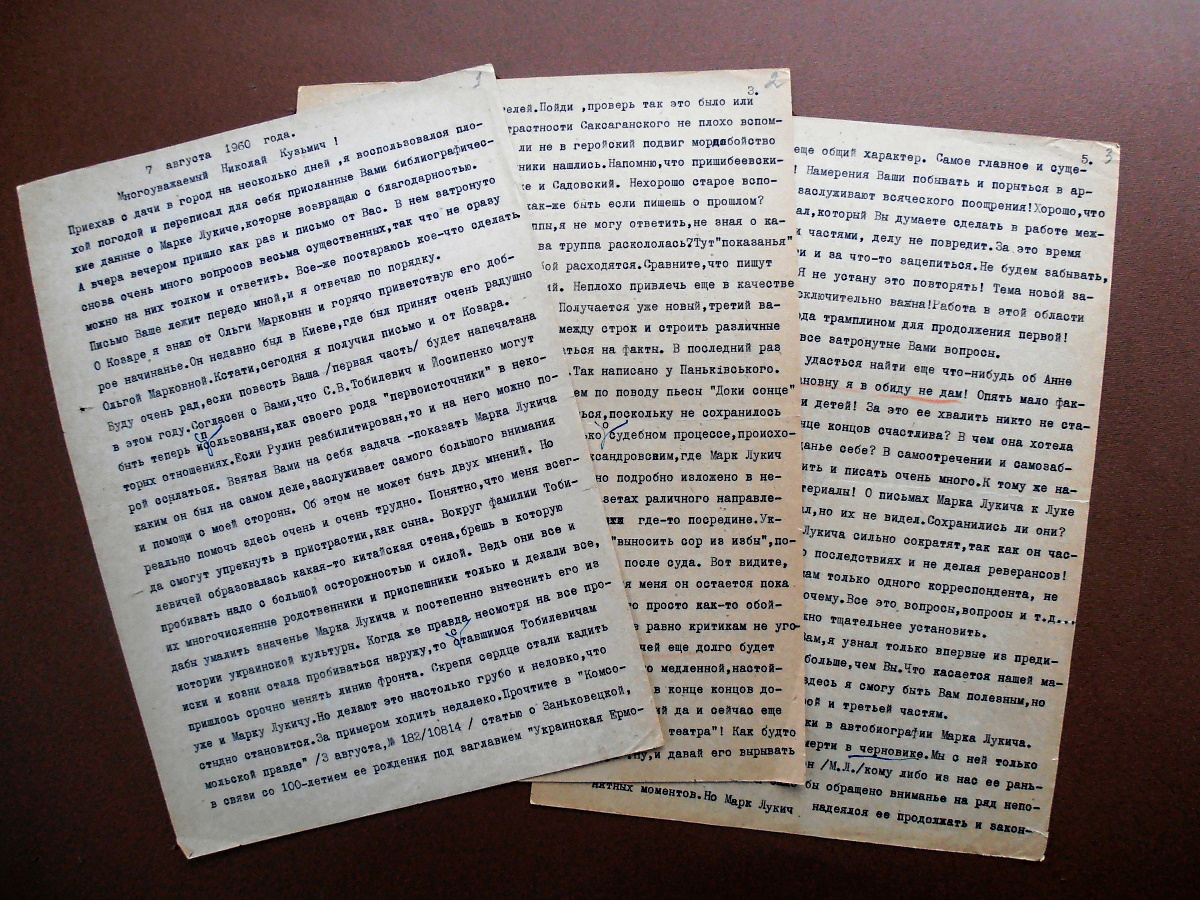 1
7 августа 1960 года.
Многоуважаемый Николай Кузьмич !
Приехав с дачи в город на несколько дней ,я воспользовался пло-
хой погодой и переписал для себя присланные Вами библиографичес-
кие данные о Марке Лукиче,которые возвращаю с благодарностью.
А вчера вечером пришло как раз и письмо от Вас. В нем затронуто
снова очень много вопросов весьма существенных,так что не сразу
можно на них толком и ответить. Все-же постараюсь кое-что сделать.
Письмо Ваше лежит передо мной,и я отвечаю по порядку.
О Козаре я знаю от Ольги Марковны и горячо приветствую его доб-
рое начинанье.Он недавно был в Киеве,где был принят очень радушно
Ольгой Марковной.Кстати,сегодня я получил письмо и от Козара.
Буду очень рад,если повесть Ваша /первая часть/ будет напечатана
в этом году.Согласен с Вами,что С.В.Тобилевич и Йосипенко могут
быть теперь использованы,как своего рода "первоисточники" в неко-
торых отношениях.Если Рулин реабилитирован,то и на него можно по-
рой ссылаться. Взятая Вами на себя задача -показать Марка Лукича
каким он был на самом деле,заслуживает самого большого внимания
и помощи с моей стороны. Об этом не может быть двух мнений. Но
реально помочь здесь очень и очень трудно. Понятно,что меня всег-
да смогут упрекнуть в пристрастии,как сына. Вокруг фамилии Тоби-
левичей образовалась какая-то китайская стена,брешь в которую
пробивать надо с большой осторожностью и силой. Ведь они все и
их многочисленные родственники и приспешники только и делали все,
дабы умалить значенье Марка Лукича и постепенно вытеснить его из
истории украинской культуры. Когда же правда, несмотря на все про-
иски и козни стала пробиваться наружу,то оставшимся Тобилевичам
пришлось срочно менять линию фронта. Скрепя сердце стали кадить
уже и Марку Лукичу.Но делают это настолько грубо и неловко,что
стыдно становится.За примером ходить недалеко.Прочтите в "Комсо-
мольской правде" /3 августа,№ 182/10814 / статью о Заньковецкой,
в связи со 100-летием ее рождения под заглавием "Украинская Ермо-
2
3.
телей.Пойди ,проверь так это было или
трастности Саксаганского не плохо вспом-
ли не в геройский подвиг мордобойство
ники нашлись. Напомню,что пришибеевски-
е и Садовский. Нехорошо старое вспо-
ак-же быть если пишешь о прошлом?
ппы,я не могу ответить,не зная о ка-
ва труппа раскололась?Тут"показанья"
ой расходятся.Сравните,что пишут
й. Неплохо привлечь еще в качестве
Получается уже новый,третий ва-
между строк и строить различные
аться на факты. В последний раз
.Так написано у Паньківського.
ем по поводу пьесы "Доки сонце"
ься,поскольку не сохранилось
ко о судебном процессе,происхо-
ксандровским,где Марк Лукич
но подробно изложено в не-
зетах раличного направле-
где-то посредине.Ук-
"выносить сор из избы",по-
после суда. Вот видите,
я меня он остается пока
о просто как-то обой-
в равно критикам не уго-
чей еще долго будет
о медленной,настой-
в конце концов до-
ий да и сейчас еще
театра"! Как будто
ну,и давай его вырывать
5. 3
еще общий характер. Самое главное и суще-
! Намерения Ваши побывать и порыться в ар-
заслуживают всяческого поощрения!Хорошо,что
ал,который Вы думаете сделать в работе меж-
и частями, делу не повредит.За это время
и и за что-то зацепиться.Не будем забывать,
Я не устану это повторять! Тема новой за-
сключительно важна!Работа в этой области
ода трамплином для продолжения первой!
все затронутые Вами вопросы.
удасться найти еще что-нибудь об Анне
ановну я в обиду не дам! Опять мало фак-
и детей! За это ее хвалить никто не ста-
нце концов счастлива? В чем она хотела
данье себе? В самоотречении и самозаб-
ить и писать очень много.К тому же на-
териалы! О письмах Марка Лукича к Луке
л,но их не видел.Сохранились ли они?
Лукича сильно сократят,так как он час-
о последствиях и не делая реверансов!
ам только одного корреспондента, не
очему.Все это вопросы,вопросы и т.д...
но тщательнее установить.
Вам,я узнал только впервые из преди-
больше,чем Вы.Что касается нашей ма-
здесь я смогу быть Вам полезным,но
рой и третьей частям.
ки в автобиографии Марка Лукича.
мерти в черновике.Мы с ней только
он /М.Л./кому либо из нас ее рань-
бы обращено вниманье на ряд непо-
нятных моментов.Но Марк Лукич надеялся ее продолжать и закон-